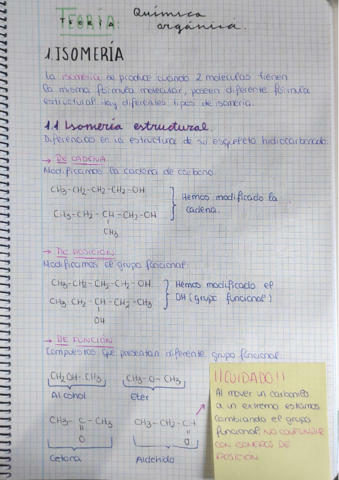 TEORÍA: Química
orgánica.
1. ISOMERÍA
La isomería se produce cuando 2 moléculas tienen
la misma fórmula molecular, poseen diferente fórmula
estructural. Hay diferentes tipos de isomería.
1.1 Isomería estructural.
Diferencias en la estructura de su esqueleto hidrocarbonado.
→ DE CADENA:
Modificamos la cadena de carbono.
CH₃-CH₂-CH₂-CH₂-OH
Hemos modificado la
cadena.
CH₃-CH₂-CH-CH₂-OH
CH₃
→ DE POSICIÓN:
Modificamos el grupo funcional.
CH₃-CH₂-CH₂-CH₂-OH
Hemos modificado el
OH (grupo funcional)
CH₃-CH₂-CH-CH₂-CH₃
OH
→ DE FUNCIÓN:
Compuestos que presentan diferente grupo funcional.
CH₂OH-CH₃ CH₃-O-CH₃
Alcohol Éter
CH₃-C-CH₃ CH₃-CH₂-C-H
O O
Cetona Aldehído
¡¡CUIDADO!!
Al mover un carbonilo
a un extremo estamos
cambiando el grupo
funcional NO CONFUNDIR
CON ISÓMEROS DE
POSICIÓN